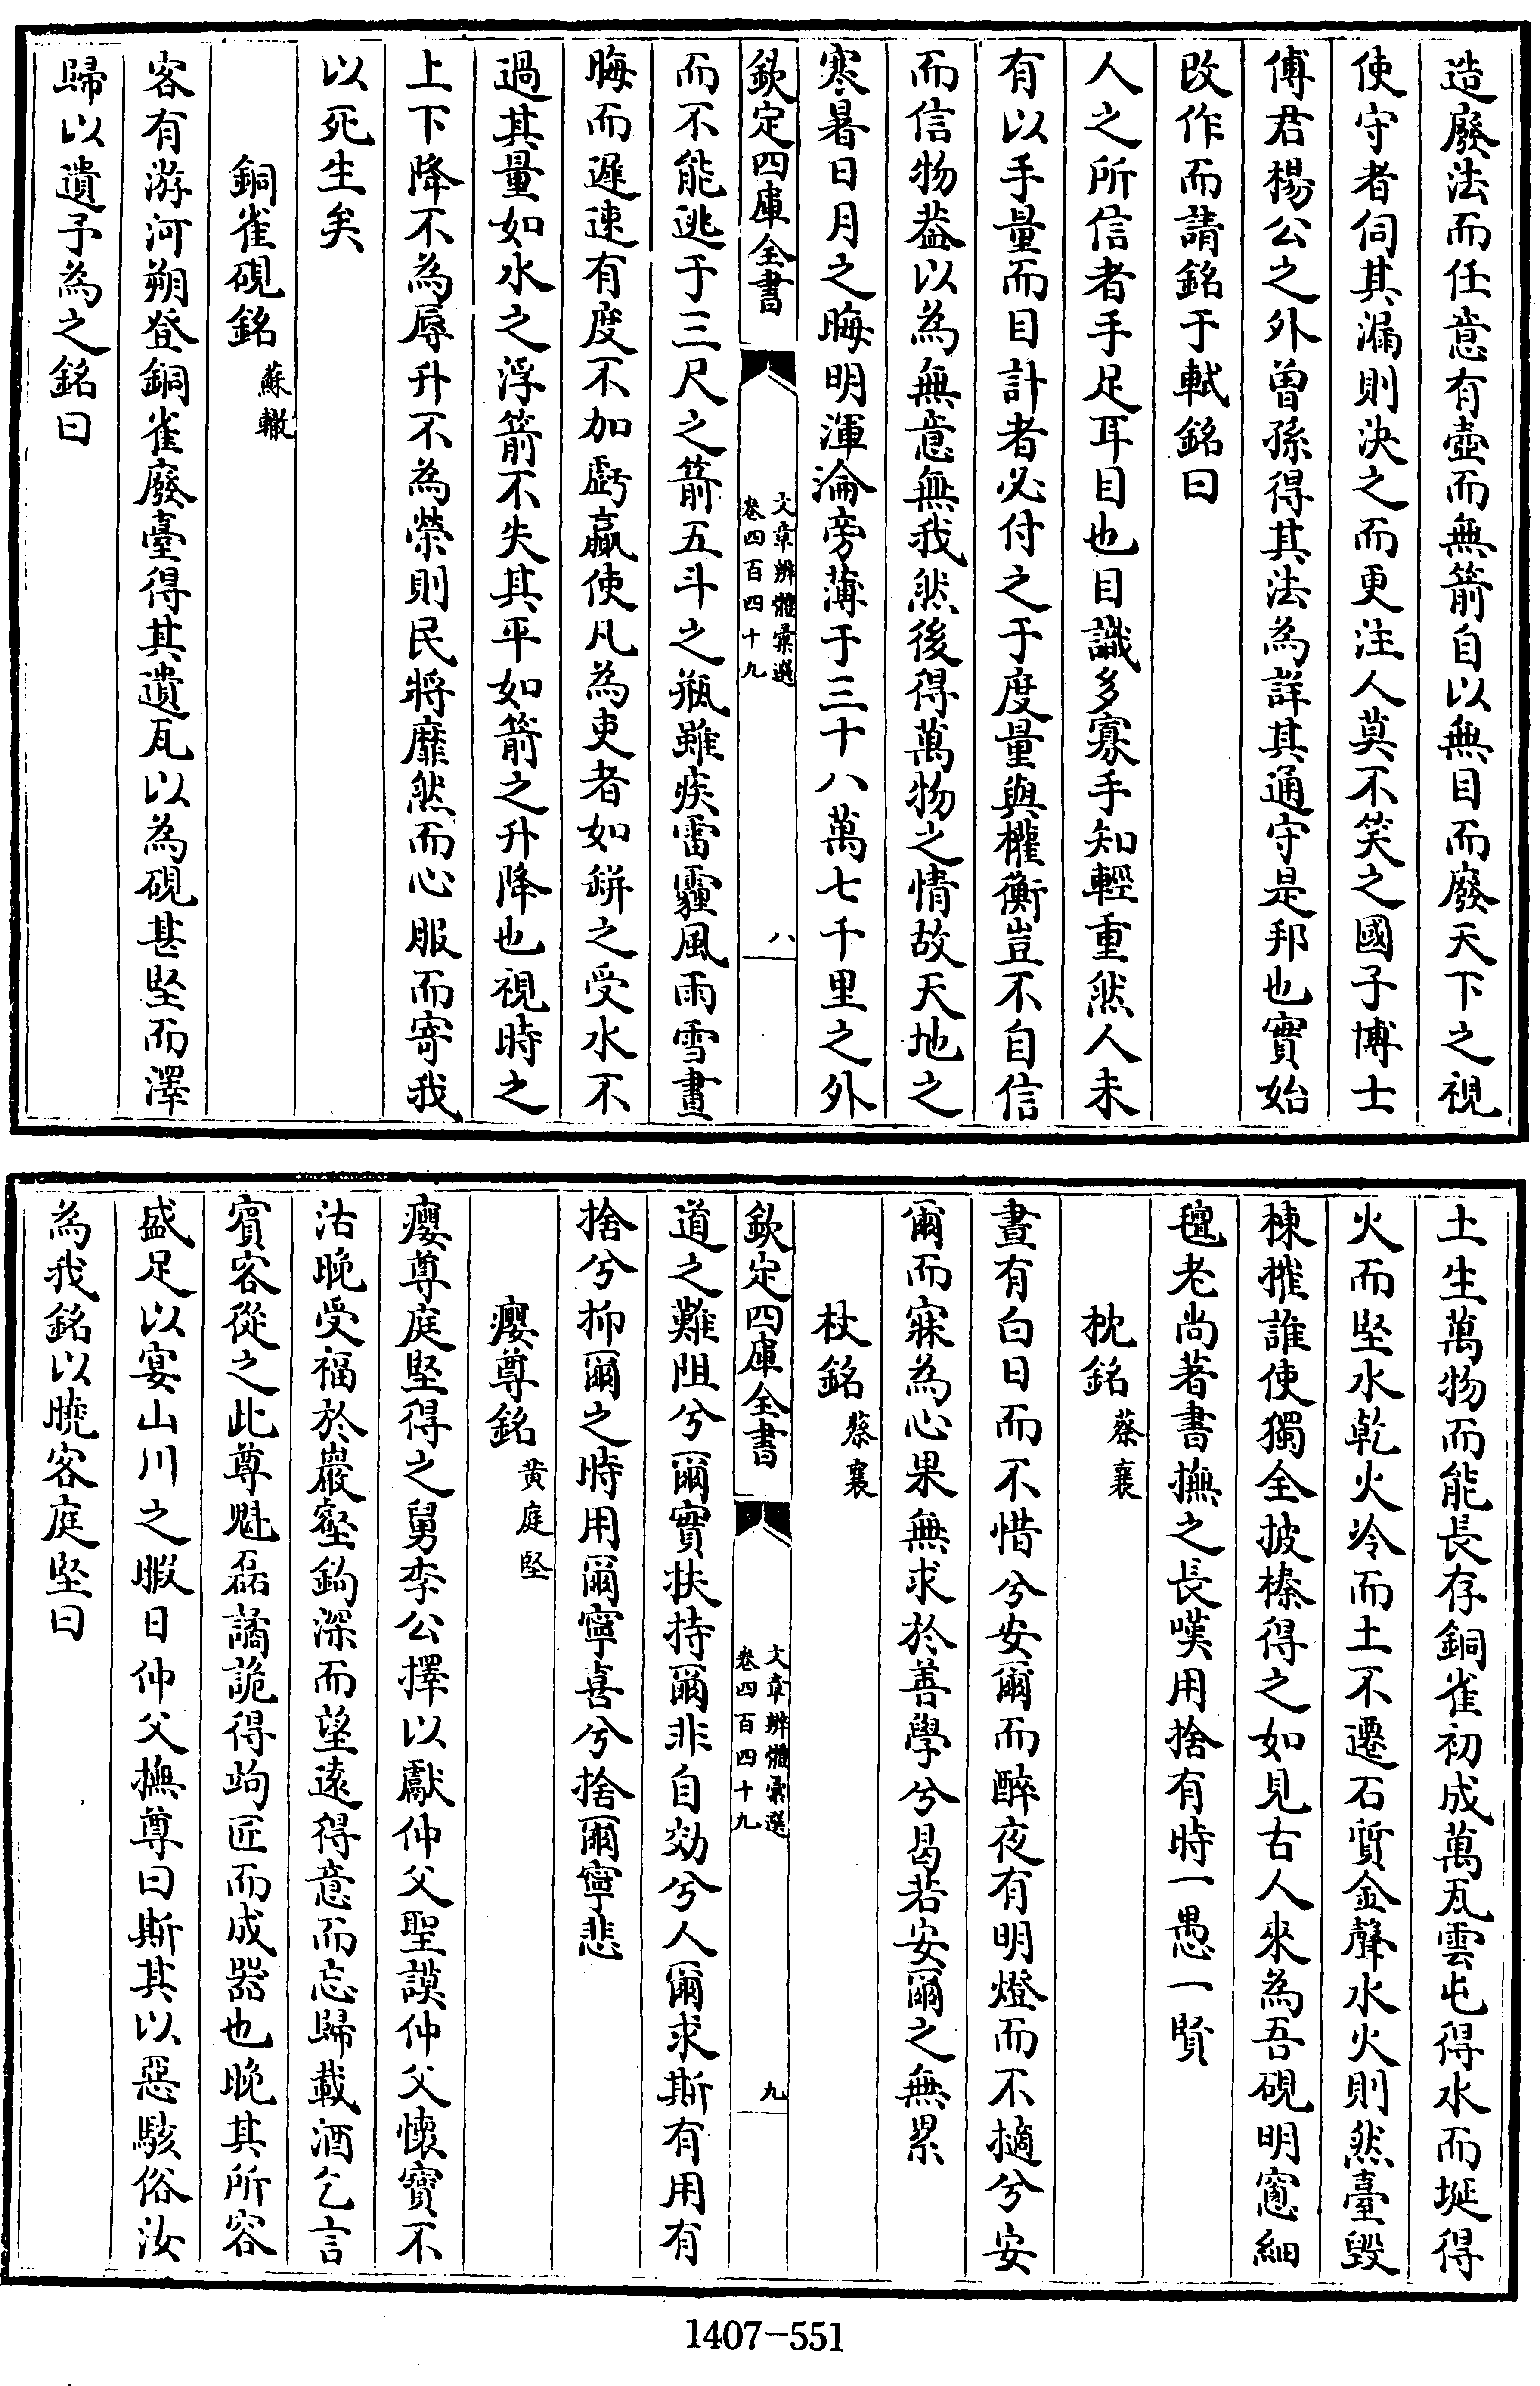 造廢法而任意有壺而無箭自以無目而廢天下之視
使守者伺其漏則決之而更注人莫不笑之國子博士
傅君楊公之外曽孫得其法為詳其通守是邦也實始
改作而請銘于軾銘曰
人之所信者手足耳目也目識多寡手知輕重然人未
有以手量而目計者必付之于度量與權衡豈不自信
而信物葢以為無意無我然後得萬物之情故天地之
寒暑日月之晦明渾淪旁薄于三十八萬七千里之外
欽定四庫全書
文章辨體彙選
卷四百四十九
八
而不能逃于三尺之箭五斗之瓶雖疾雷霾風雨雪晝
晦而遲速有度不加虧贏使凡為吏者如缾之受水不
過其量如水之浮箭不失其平如箭之升降也視時之
上下降不為辱升不為榮則民將靡然而心服而寄我
以死生矣
銅雀硯銘 蘇轍
客有游河朔登銅雀廢臺得其遺瓦以為硯甚堅而澤
歸以遺予為之銘曰
土生萬物而能長存銅雀初成萬瓦雲屯得水而埏得
火而堅水乾火冷而土不遷石質金聲水火則然臺毀
棟摧誰使獨全披榛得之如見古人來為吾硯明窓細
氊老尚著書撫之長嘆用捨有時一愚一賢
枕銘 蔡襄
晝有白日而不惜兮安爾而醉夜有明燈而不擿兮安
爾而寐為心果無求於善學兮曷若安爾之無累
杖銘 蔡襄
欽定四庫全書
文章辨體彙選
卷四百四十九
九
道之難阻兮爾實扶持爾非自効兮人爾求斯有用有
捨兮抑爾之時用爾寧喜兮捨爾寧悲
癭尊銘 黄庭堅
癭尊庭堅得之舅李公擇以獻仲父聖謨仲父懷寶不
沽晚受福於巖壑鈎深而望遠得意而忘歸載酒乞言
賓客從之此尊魁磊譎詭得竘匠而成器也晚其所容
盛足以宴山川之暇日仲父撫尊曰斯其以惡駭俗汝
為我銘以曉客庭堅曰
1407-551